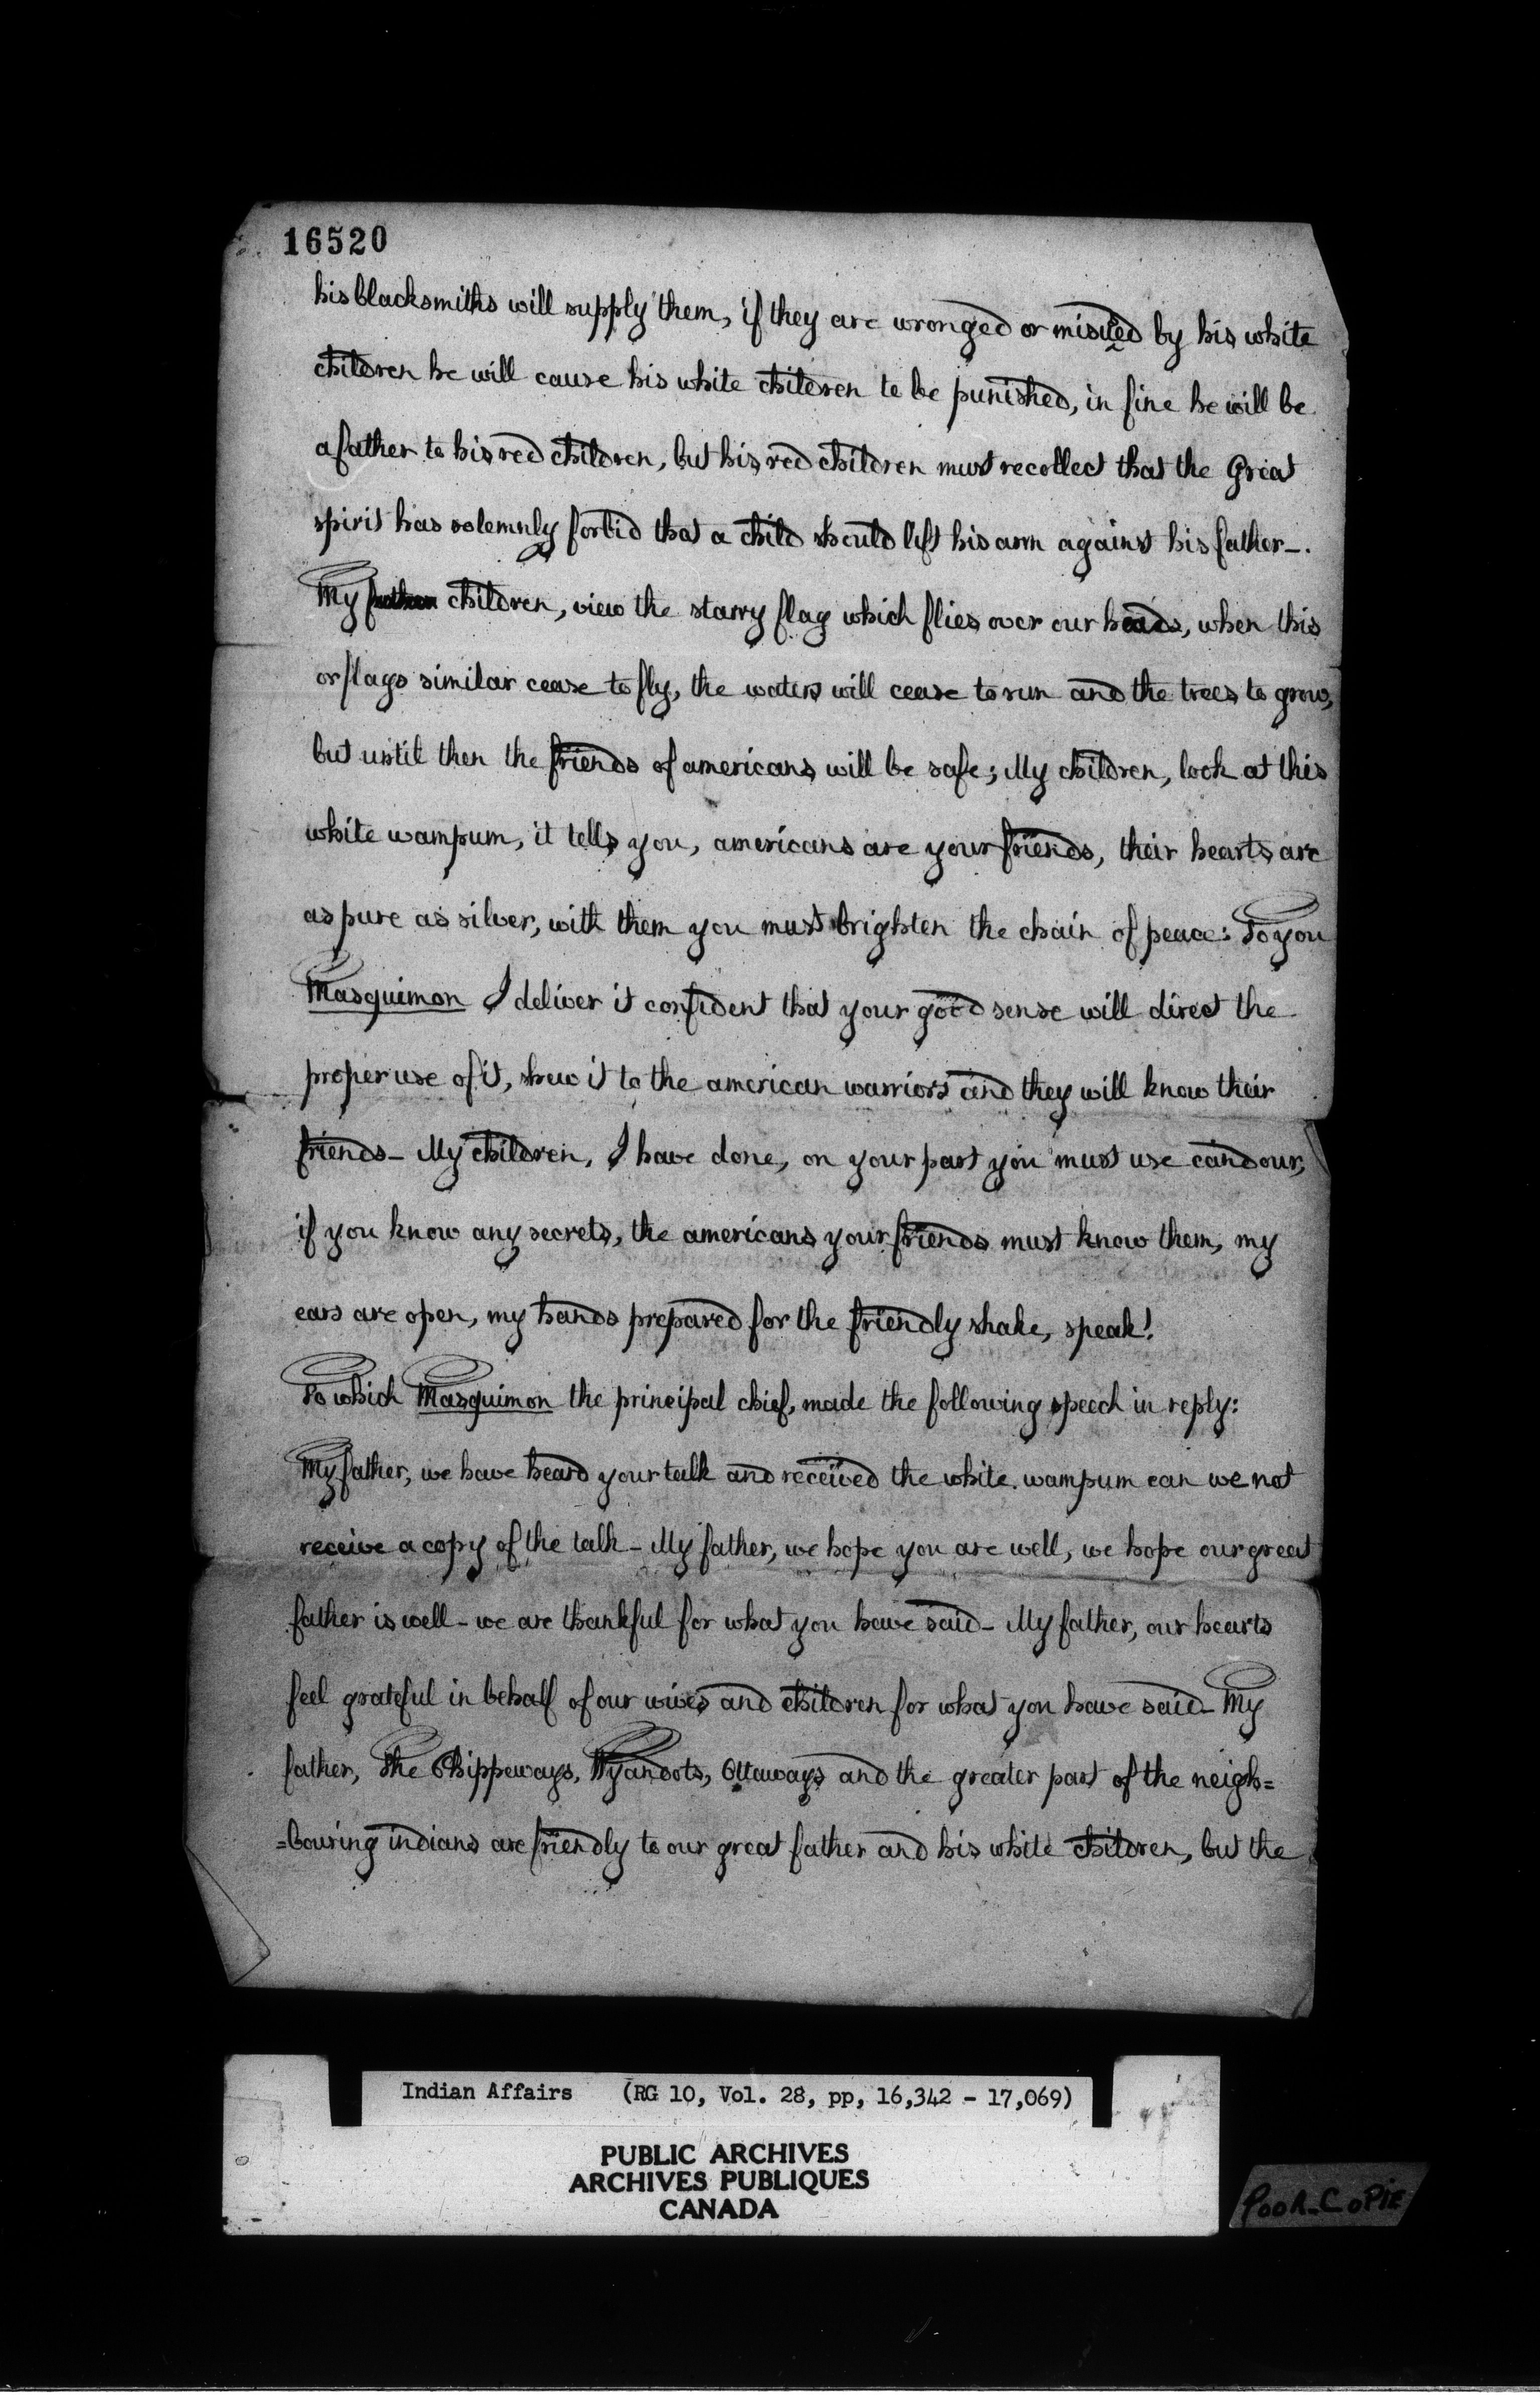 16520
his blacksmiths will supply them, if they are wronged or misused by his white
children he will cause his white children to be punished, in fine he will be
a father to his red children, but his red children must recollect that the Great
spirit has solemnly forbid that a child should lift his arm against his father-.
My father children, view the starry flag which flies over our heads, when this
or flags similar cease to fly, the waters will cease to run and the trees to grow,
but until then the friends of americans will be safe; My children, look at this
white wampum, it tells you, americans are your friends, their hearts are
as pure as silver, with them you must brighten the chain of peace: To you
Masquimon I deliver it confident that your good sense will direct the
proper use of it, shew it to the american warriors and they will know their
friends- My children, I have done, on your part you must use candour,
if you know any secrets, the americans your friends must know them, my
ears are open, my hands prepared for the friendly shake, speak!
To which Masquimon the principal chief, made the following speech in reply:
My father, we have heard your talk and received the white wampum can we not
receive a copy of the talk - My father, we hope you are well, we hope our great
father is well - we are thankful for what you have said - My father, our hearts
feel grateful in behalf of our wives and children for what you have said - My
father, The Chippeways, Wyandots, Ottaways and the greater part of the neigh=
=bouring indians are friendly to our great father and his white children, but the
Indian Affairs (RG 10, Vol. 28, pp, 16,342 - 17,069)
PUBLIC ARCHIVES
ARCHIVES PUBLIQUES
CANADA
POOR-COPIE